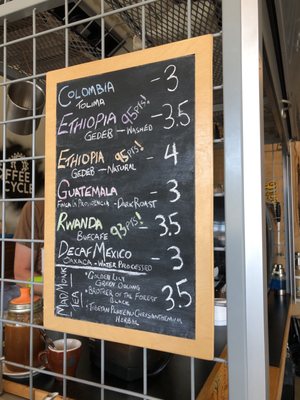 COLOMBIA - 3
TOLIMA
ETHIOPIA 95PTS! - 3.5
GEDEB - WASHED
ETHIOPIA 95PTS! - 4
GEDEB - NATURAL
GUATEMALA - 3
FINCA LA PROVIDENCIA - DARK ROAST
RWANDA 93PTS! - 3.5
BUFCAFE
DECAF MEXICO - 3
OAXACA - WATER PROCESSED
MAD MONK TEA
• GOLDEN LILY
GREEN OOLONG
• BROTHER OF THE FOREST
BLACK
3.5
• TIBETAN PLATEAU CHRYSANTHEMUM
HERBAL
COFFEE
CYCLE